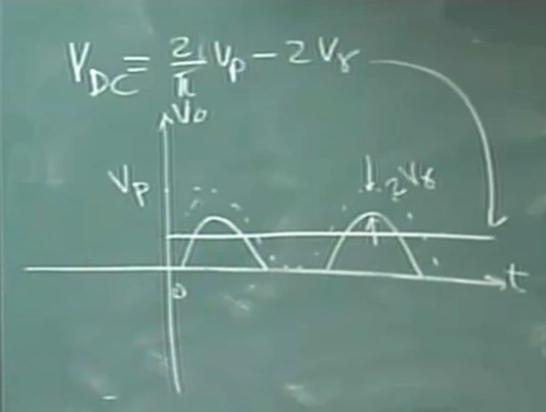 V_DC = 2/π V_p - 2V_γ
V_o
V_p
2V_γ
0
t